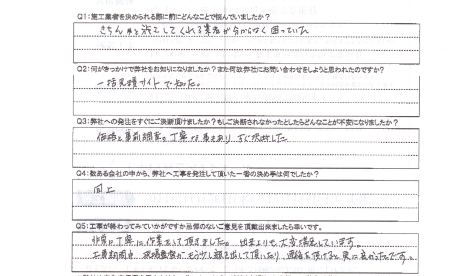 Q1：施工業者を決められる際に前にどんなことで悩んでいましたか？
きちんと施工してくれる業者が分からなく困っていた
Q2：何がきっかけで弊社をお知りになりましたか？また何故弊社にお問い合わせをしようと思われたのですか？
一括見積サイトで知った。
Q3：弊社への発注をすぐにご決断頂けましたか？もしご決断されなかったとしたらどんなことが不安になりましたか？
価格と事前調査の丁寧さもあり、すぐ決断した
Q4：数ある会社の中から、弊社へ工事を発注して頂いた一番の決め手は何でしたか？
同上
Q5：工事が終わってみていかがですか忌憚のないご意見を頂戴出来ましたら幸いです。
非常に丁寧に作業をして頂きました。出来よりも、大変満足しています。
工事期間中、現場監督がもう少し顔を出して頂いたり、連絡を頂けると更に良かったです。